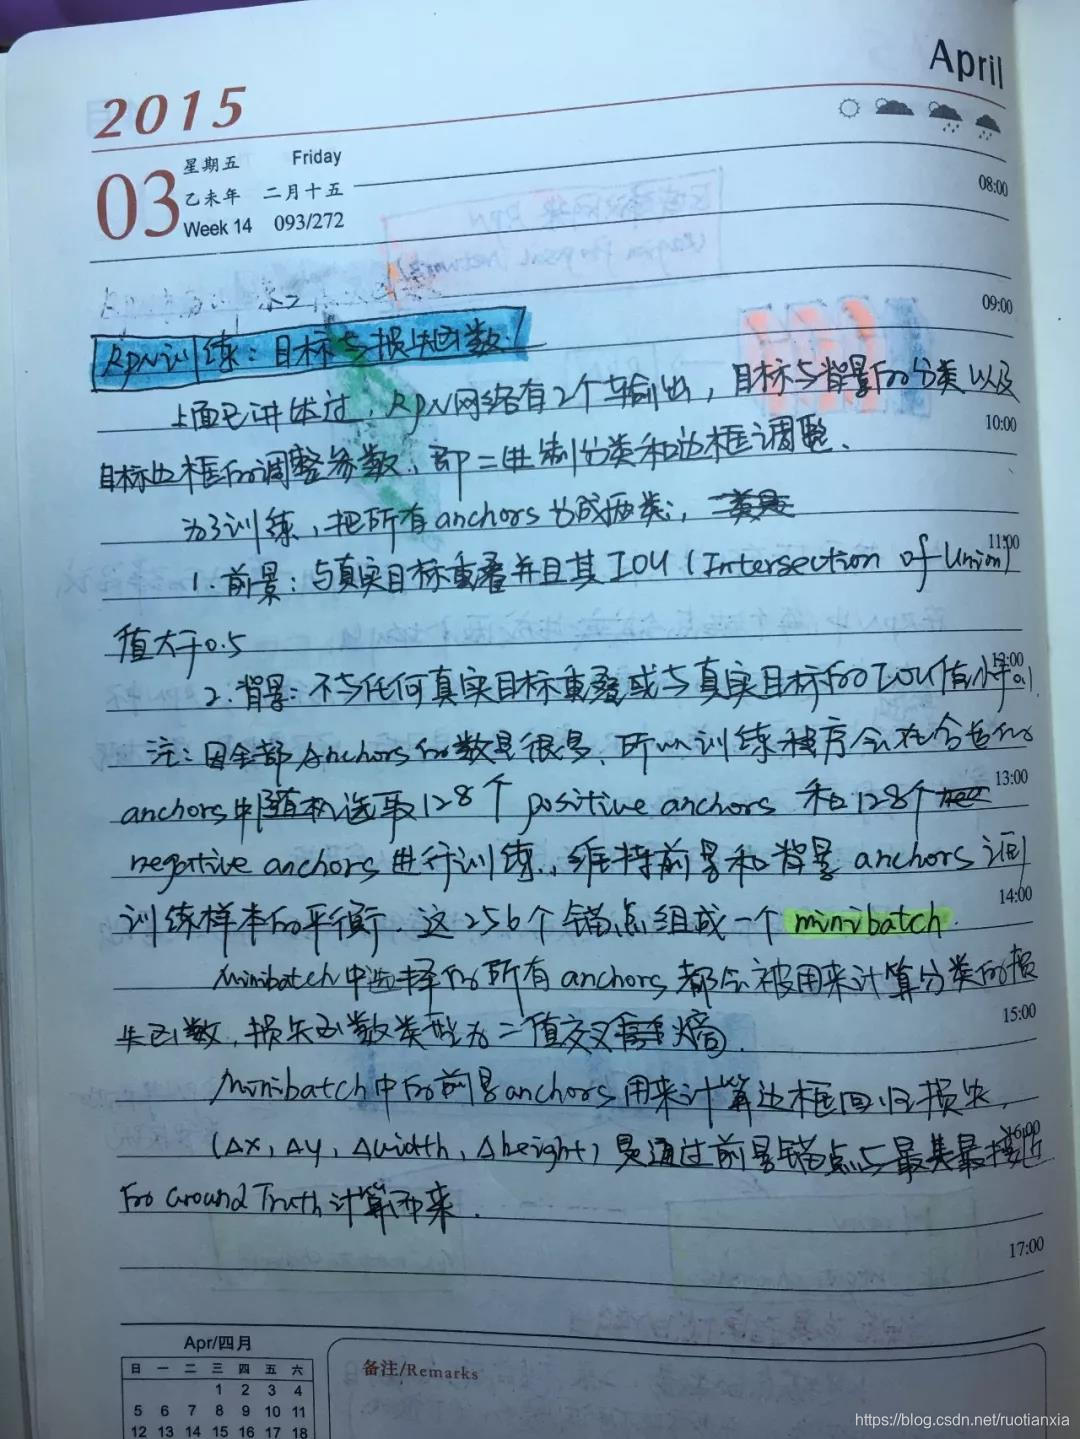 April
2015
03 星期五 Friday
乙未年 二月十五
Week 14 093/272
08:00
09:00
RPN训练：目标与损失函数：
上面已讲述过，RPN网络有2个输出，目标与背景的分类以及
10:00
目标边框的调整参数，即二进制分类和边框调整.
为了训练，把所有anchors分成两类；
11:00
1. 前景：与真实目标重叠并且其IOU (Intersection of Union)
值大于0.5
12:00
2. 背景：不与任何真实目标重叠或与真实目标的IOU值小于0.1.
注：因全部Anchors的数量很多，所以训练程序会在合适的
13:00
anchors中随机选取128个 positive anchors 和128个
negative anchors进行训练，维持前景和背景 anchors 间
14:00
训练样本的平衡. 这256个锚点组成一个 minibatch.
Minibatch中选择的所有anchors都会被用来计算分类的损
15:00
失函数，损失函数类型为二值交叉熵.
Minibatch中的前景anchors用来计算边框回归损失.
16:00
(Δx, Δy, Δwidth, Δheight) 是通过前景锚点与最接近
的Ground Truth计算而来.
17:00
Apr/四月
日 一 二 三 四 五 六
1 2 3 4
5 6 7 8 9 10 11
12 13 14 15 16 17 18
备注/Remarks
https://blog.csdn.net/ruotianxia